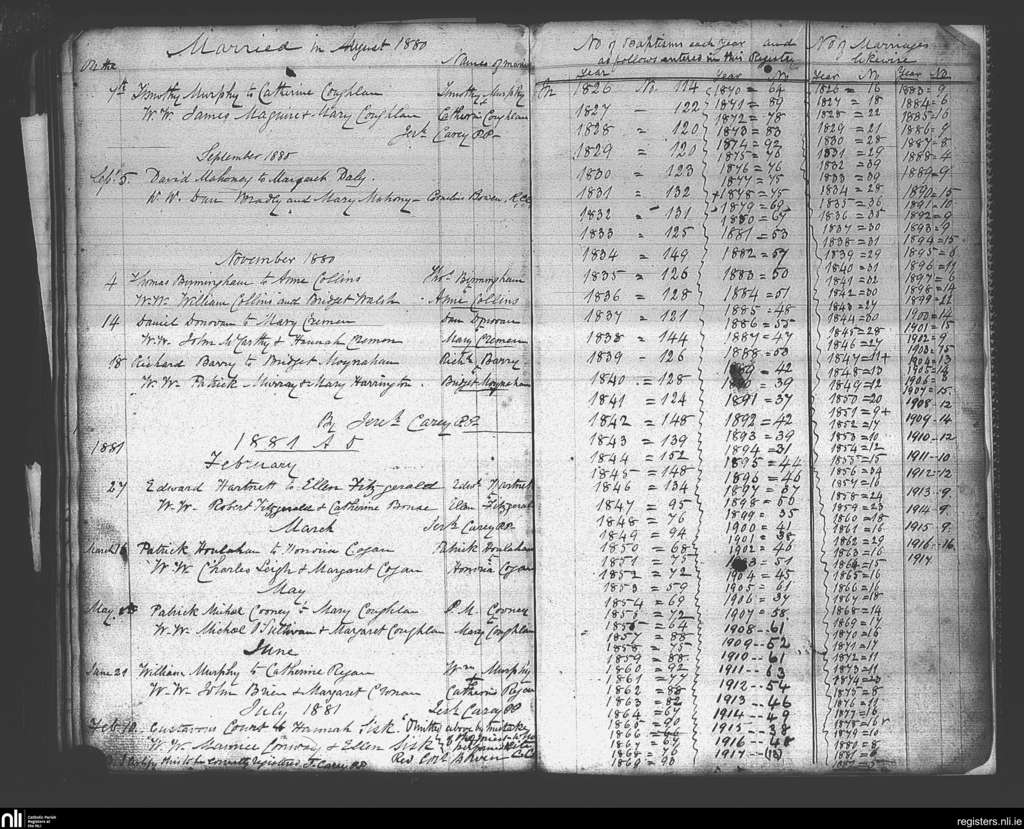 Married in August 1880
On the
Names of
7th Timothy Murphy to Catherine Coughlan Timothy Murphy
W.W. James Maguire & Mary Coughlan Catherine Coughlan
Jerh. Carey P.P.
September 1880
Sept 5. David Mahoney to Margaret Daly.
W.W. Dan and Mary Mahony Cornelius
November 1880
4 Thomas Birmingham to Anne Collins Thos. Birmingham
W.W. William Collins and Bridget Walsh Anne Collins
14 Daniel Donovan to Mary Cremen Dan Donovan
W.W. John McCarthy & Hannah Cremen Mary Cremen
18 Richard Barry to Bridget Moynahan Richd. Barry
W.W. Patrick Murray & Mary Harrington Bridget Moynahan
By Jerh. Carey P.P.
1881
1881 A D
February
27 Edward Hartnett to Ellen Fitzgerald Edwd. Hartnett
W.W. Robert Fitzgerald & Catherine Ellen Fitzgerald
March Jerh. Carey P.P.
March 16 Patrick Houlahan to Honoria Cogan Patrick Houlahan
W.W. Charles Leigh & Margaret Cogan Honoria Cogan
May
May Patrick Michal Cooney to Mary Coughlan P.M. Cooney
W.W. Michael O'Sullivan & Margaret Coughlan Mary Coughlan
June
June 21 William Murphy to Catherine Regan Wm Murphy
W.W. John Brien & Margaret Cronan Catherine Regan
July 1881 Jerh. Carey P.P.
Feb. 10. Gustavus Court to Hannah Sisk Omitted above by mistake
W.W. Maurice Conway & Ellen Sisk
Revd.
No of Baptisms each Year and
as follows entered in this Register
Year Year No
1826 No. 114 1870 = 64
1827 - 122 1871 = 89
1872 = 78
1828 = 120 1873 = 83
1874 = 92
1829 = 120 1875 = 76
1876 = 76
1830 = 123
1831 = 132 1878 = 75
1879 = 69
1832 - 131 1880 = 67
1833 = 125 1881 = 53
1834 = 149 1882 = 57
1835 = 126 1883 = 50
1836 = 128 1884 = 51
1837 = 121 1885 = 48
1886 = 55
1838 = 144 1887 = 47
1839 - 126 1888 = 53
= 42
1840 = 128 = 39
1841 = 124 1891 = 37
1842 = 148 1892 = 42
1843 = 139 1893 = 39
1844 = 152 1894 = 31
1845 = 148 1895 = 44
1846 = 134 1896 = 46
1847 = 95
1848 = 76 1899 = 35
1849 = 94 1900 = 41
1850 = 68 1901 = 38
1851 = 75 1902 = 46
1852 = 72 = 51
1853 = 59 1904 = 45
1854 = 69 1905 = 61
1855 = 72 1906 = 37
1856 = 64 1907 = 58
1857 = 88 1908 - 61
1858 = 75 1909 - 52
1859 = 88 1910 - 61
1860 = 92 1911 - 63
1861 = 77 1912 - 54
1862 = 88
1863 = 82 1913 - 46
1864 = 67 1914 - 49
1865 = 90 1915 - 38
1866 =
1867 = 1916 -
1868 = 1917 - (13)
1869 = 90
No of Marriages
likewise
Year No Year No
1826 = 16 1883 = 9
1827 = 18 1884 = 6
1828 = 22 1885 = 16
1829 = 21 1886 = 9
1830 = 28 1887 = 8
1831 = 29 1888 = 4
1832 = 39 1889 = 9
1833 = 39
1834 = 28 1890 = 15
1835 = 36 1891 = 10
1836 = 35 1892 = 9
1837 = 30 1893 = 9
1838 = 31 1894 = 15
1839 = 29 1895 = 6
1840 = 31 1896 = 11
1841 = 02 1897 = 6
1842 = 30 1898 = 14
1843 = 27
1844 = 30 1900 = 14
1845 = 28 1901 = 15
1846 = 27 1902 = 9
1847 = 11+ 1903 = 15
1848 = 13
1849 = 12 1906 = 8
1850 = 20 1907 = 15
1851 = 9+ 1908 - 12
1852 = 17 1909 - 14
1853 = 10 1910 - 12
1854 = 12
1855 = 15 1911 - 10
1856 = 24 1912 - 12
1857 = 16
1858 = 24 1913 - 9
1859 = 23 1914 - 9
1860 = 18
1861 = 16 1915 - 9
1862 = 29 1916 - 16
1863 = 16 1917
1864 = 15
1865 = 16
1866 = 16
1867 = 18
1868 = 14
1869 = 17
1870 = 16
1871 = 17
1872 = 11
1873 = 11
1875 = 8
1876 = 11
1877 = 16
1879 = 10
nli Catholic Parish
Registers at
the NLI
registers.nli.ie